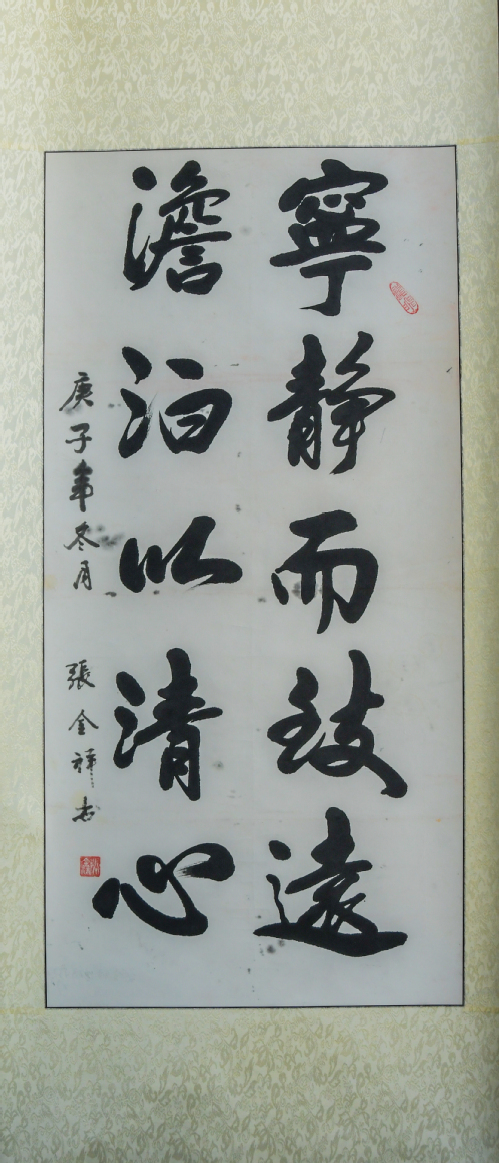 寧靜而致遠
澹泊以清心
庚子年冬月 張金祥書